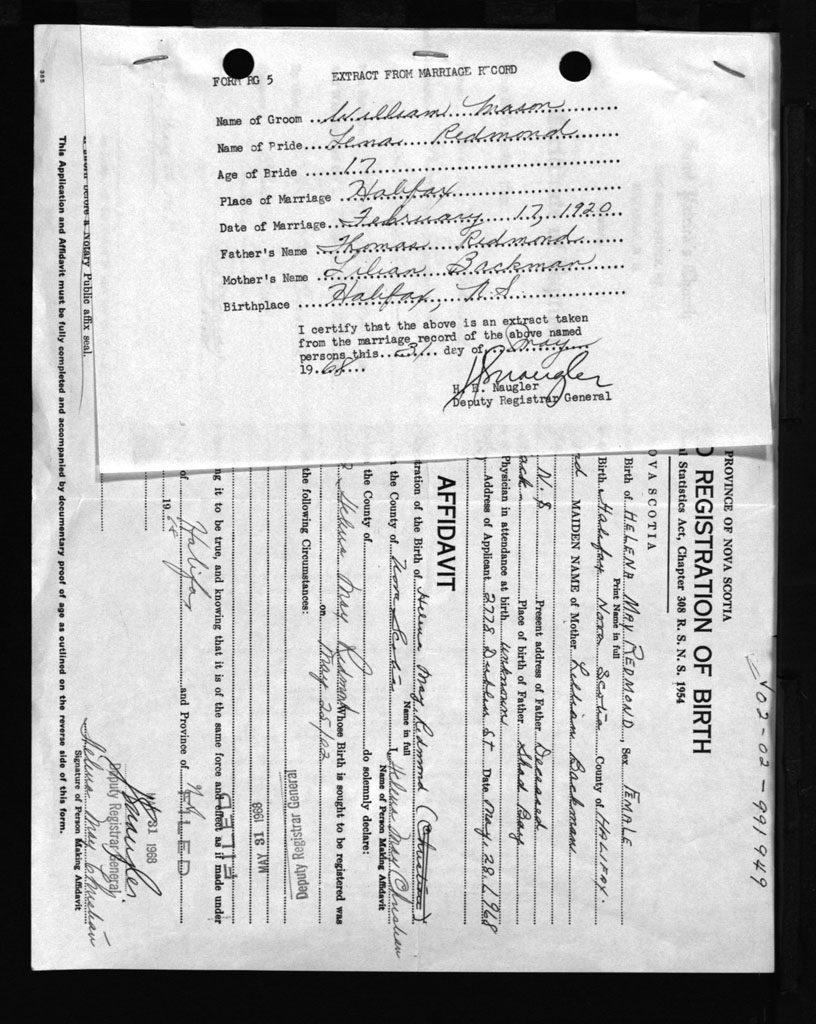 FORM RG 5 EXTRACT FROM MARRIAGE RECORD
Name of Groom ..William Mason
Name of Pride..Lena Redmond
Age of Bride ...17
Place of Marriage ..Halifax
Date of Marriage..February 17, 1920
Father's Name ..Thomas Redmond
Mother's Name ..Lilian Backman
Birthplace ..Halifax, N.S.
I certify that the above is an extract taken
from the marriage record of the above named
persons this..31.. day of..May
19.68...
H. B. Naugler
Deputy Registrar General
02-02-991949
PROVINCE OF NOVA SCOTIA
REGISTRATION OF BIRTH
Statistics Act, Chapter 308 R. S. N. S. 1954
OVA SCOTIA
Birth of HELENA MAY REDMOND, Sex FEMALE
Print Name in full
Birth Halifax Nova Scotia County of HALIFAX.
MAIDEN NAME of Mother Lillian Backman
N.S Present address of Father Deceased
Place of birth of Father Shad Bay
Physician in attendance at birth unknown
Address of Applicant 2778 Dublin St Date May. 28, 1968
AFFIDAVIT
tration of the Birth of Helena May Redmond (Christian)
Name in full
the County of Nova Scotia I, Helena May Christian
Name of Person Making Affidavit
the County of do solemnly declare:
Helena May Redmond Whose Birth is sought to be registered was
on May 25/02
the following Circumstances:
Deputy Registrar General
MAY 31 1968
FILED
ng it to be true, and knowing that it is of the same force and effect as if made under
of Halifax and Province of N.S.
19 68
MAY 31 1968
Deputy Registrar General
Helena May Christian
Signature of Person Making Affidavit
before a Notary Public affix seal.
This Application and Affidavit must be fully completed and accompanied by documentary proof of age as outlined on the reverse side of this form.